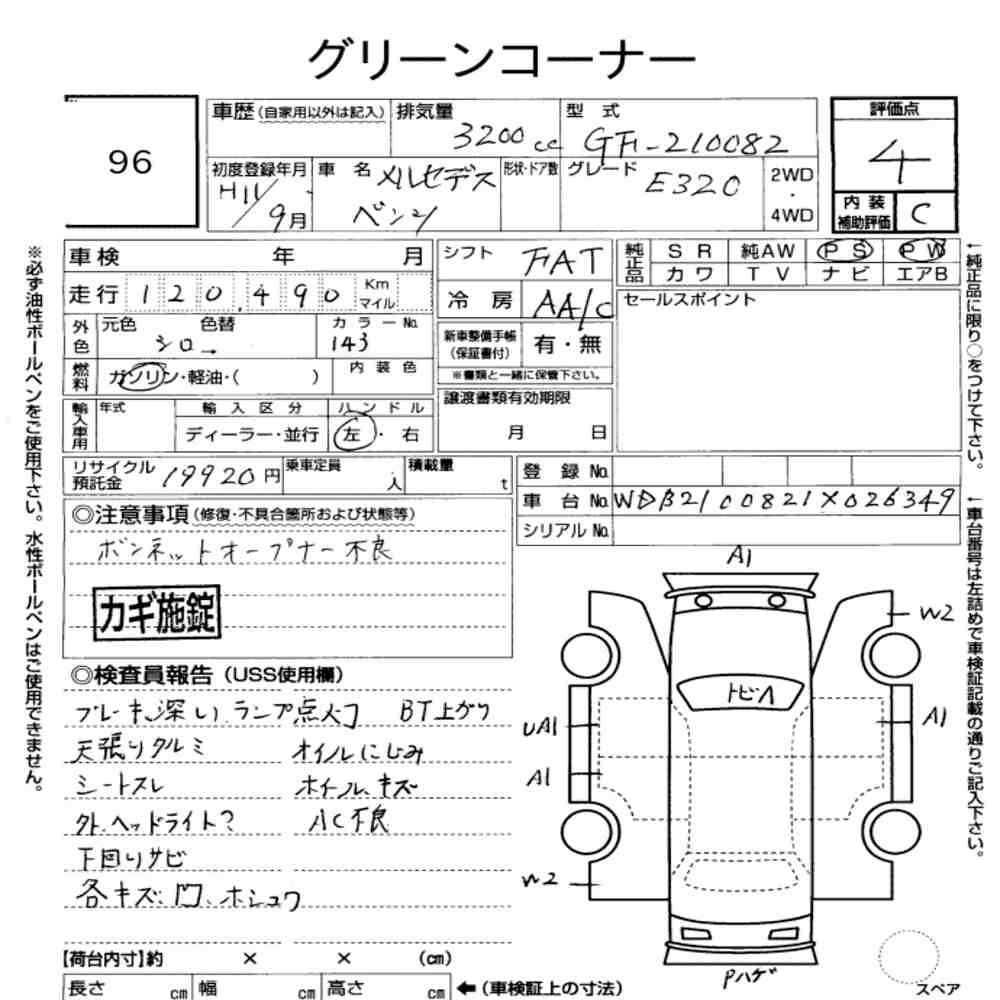 グリーンコーナー
96
車歴(自家用以外は記入)
排気量
3200cc
型 式
GF-210082
評価点
4
初度登録年月
H11/9月
車 名
メルセデス
ベンツ
形状・ドア数
グレード
E320
2WD
・
4WD
内 装
補助評価
C
※必ず油性ボールペンをご使用下さい。水性ボールペンはご使用できません。
車検 年 月
走行 120,490 Km マイル
外色 元色 色替 カラーNo.
シロ→ 143
燃料 ガソリン・軽油・( ) 内 装 色
輸入車用 年式 輸 入 区 分 ハ ン ド ル
ディーラー・並行 左・右
シフト FAT
冷 房 AA/C
新車整備手帳
(保証書付) 有・無
※書類と一緒に保管下さい。
譲渡書類有効期限
月 日
純正品 S R 純AW P S P W
カ ワ T V ナ ビ エアB
セールスポイント
←純正品に限り○をつけて下さい。
リサイクル
預託金 19920円
乗車定員
人
積載量
t
登 録 No.
車 台 No. WDB2100821X026349
シリアル No.
←車台番号は左詰めで車検証記載の通りご記入下さい。
◎注意事項(修復・不具合箇所および状態等)
ボンネットオープナー不良
カギ施錠
◎検査員報告(USS使用欄)
ブレーキ深い、ランプ点灯 BT上がり
天張りタルミ オイルにじみ
シートスレ ホイールキズ
外、ヘッドライト? AC不良
下回りサビ
各キズ、凹、ホシュウ
A1
W2
トビA
UA1
A1
A1
W2
Pハゲ
スペア
【荷台内寸】約 × × (cm)
長さ cm 幅 cm 高さ cm ←(車検証上の寸法)